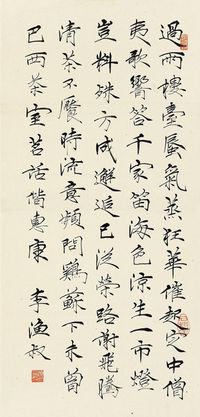 過雨樓臺蜃氣蒸狂華催起定中僧
夷歌響答千家笛海色涼生一市燈
豈料殊方成邂逅已從榮路謝飛騰
清茶不饜時流意頻問鷄蘇下未曾
巴西茶室茗話偕惠康 李漁叔